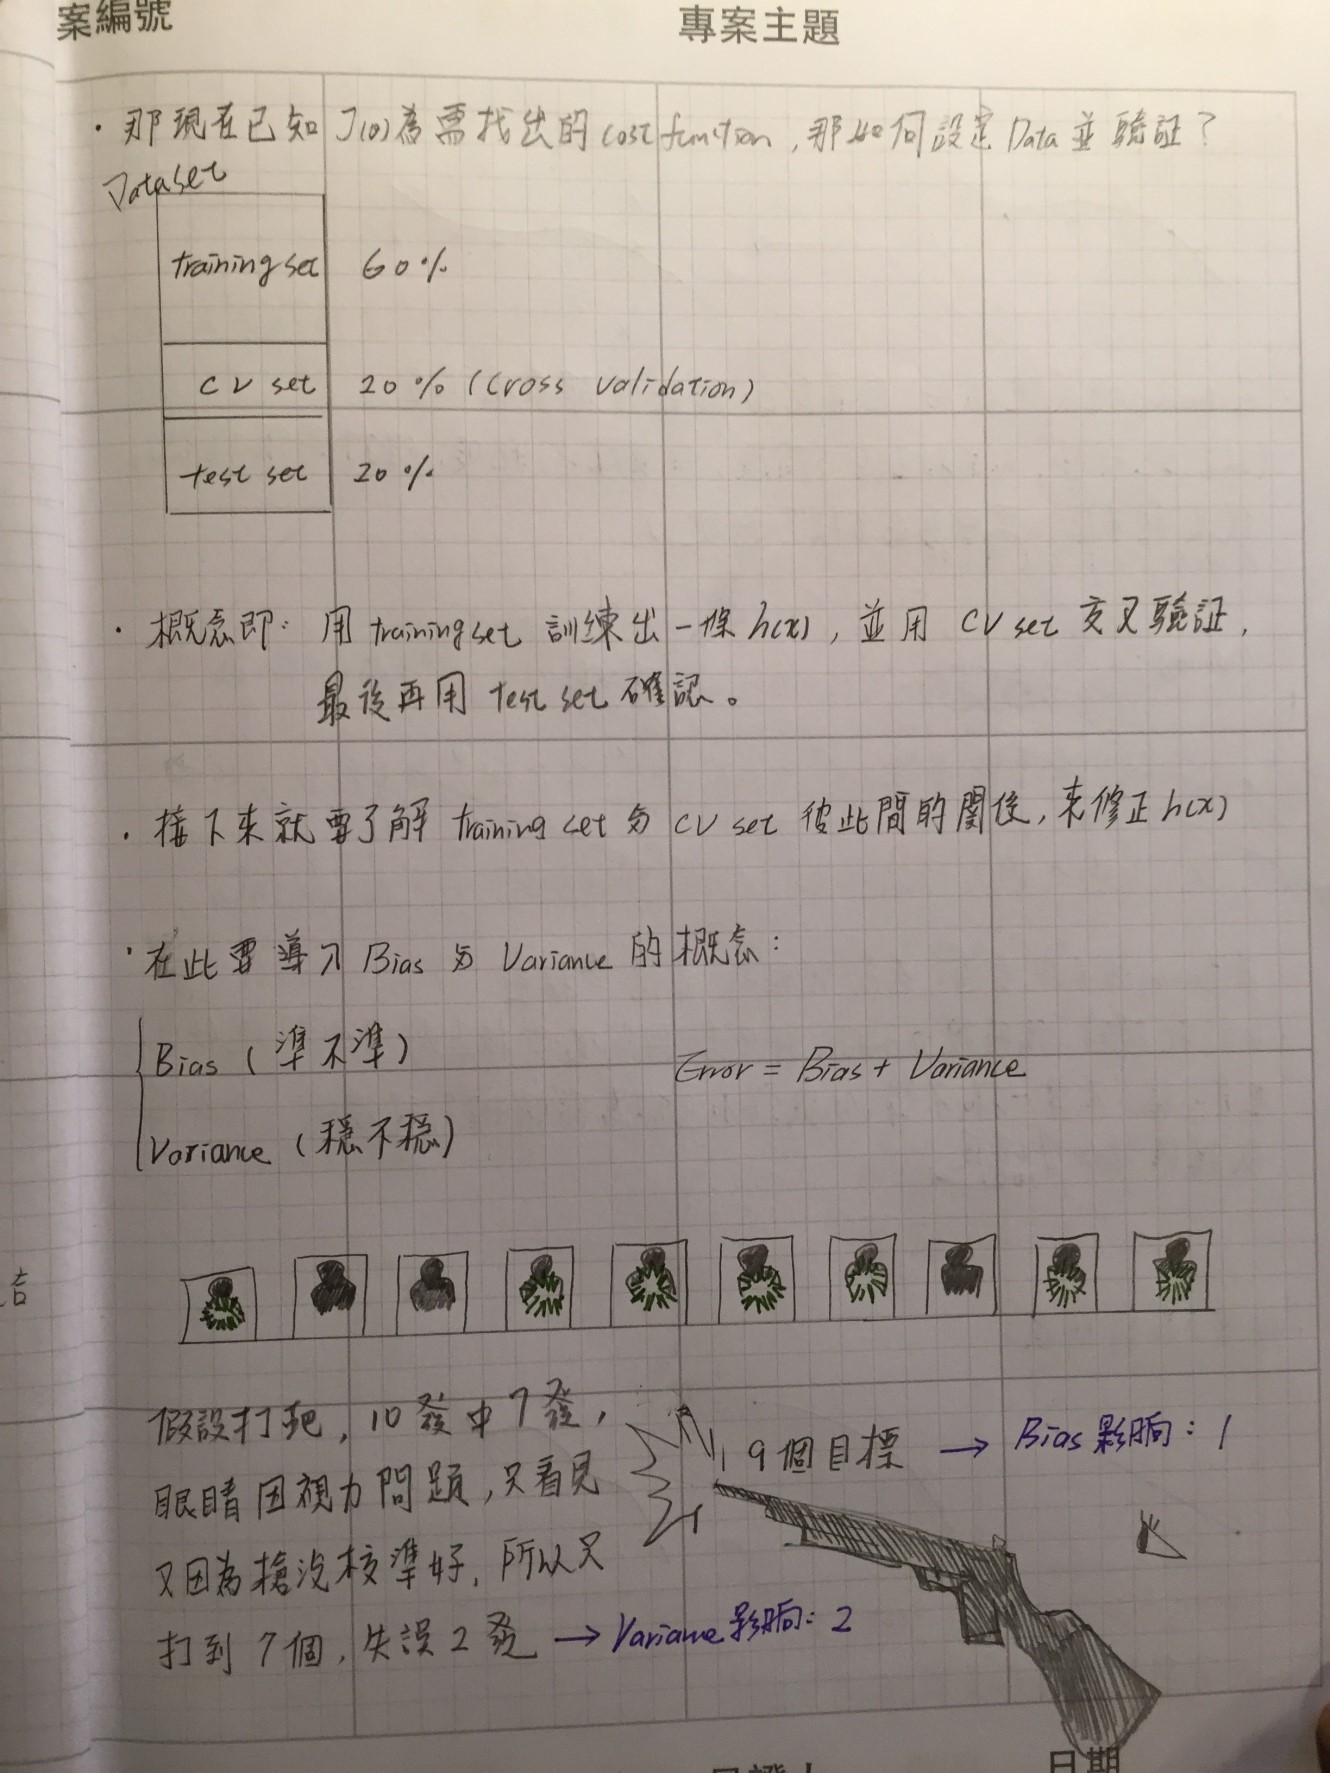 案編號
專案主題
・那現在已知 J(θ)為需找出的 cost function, 那如何設定 Data 並驗証？
Dataset
training set 60%
CV set 20% (Cross validation)
test set 20%
・概念即: 用 training set 訓練出一條 h(x), 並用 CV set 交叉驗証,
最後再用 test set 確認。
・接下來就要了解 training set 与 CV set 彼此間的關係, 來修正 h(x)
・在此要導入 Bias 与 Variance 的概念:
Bias (準不準)
Error = Bias + Variance
Variance (穩不穩)
假設打靶, 10發中7發,
眼睛因視力問題, 只看見 9個目標 → Bias影响: 1
又因為槍沒校準好, 所以只
打到7個, 失誤2發 → Variance影响: 2
日期